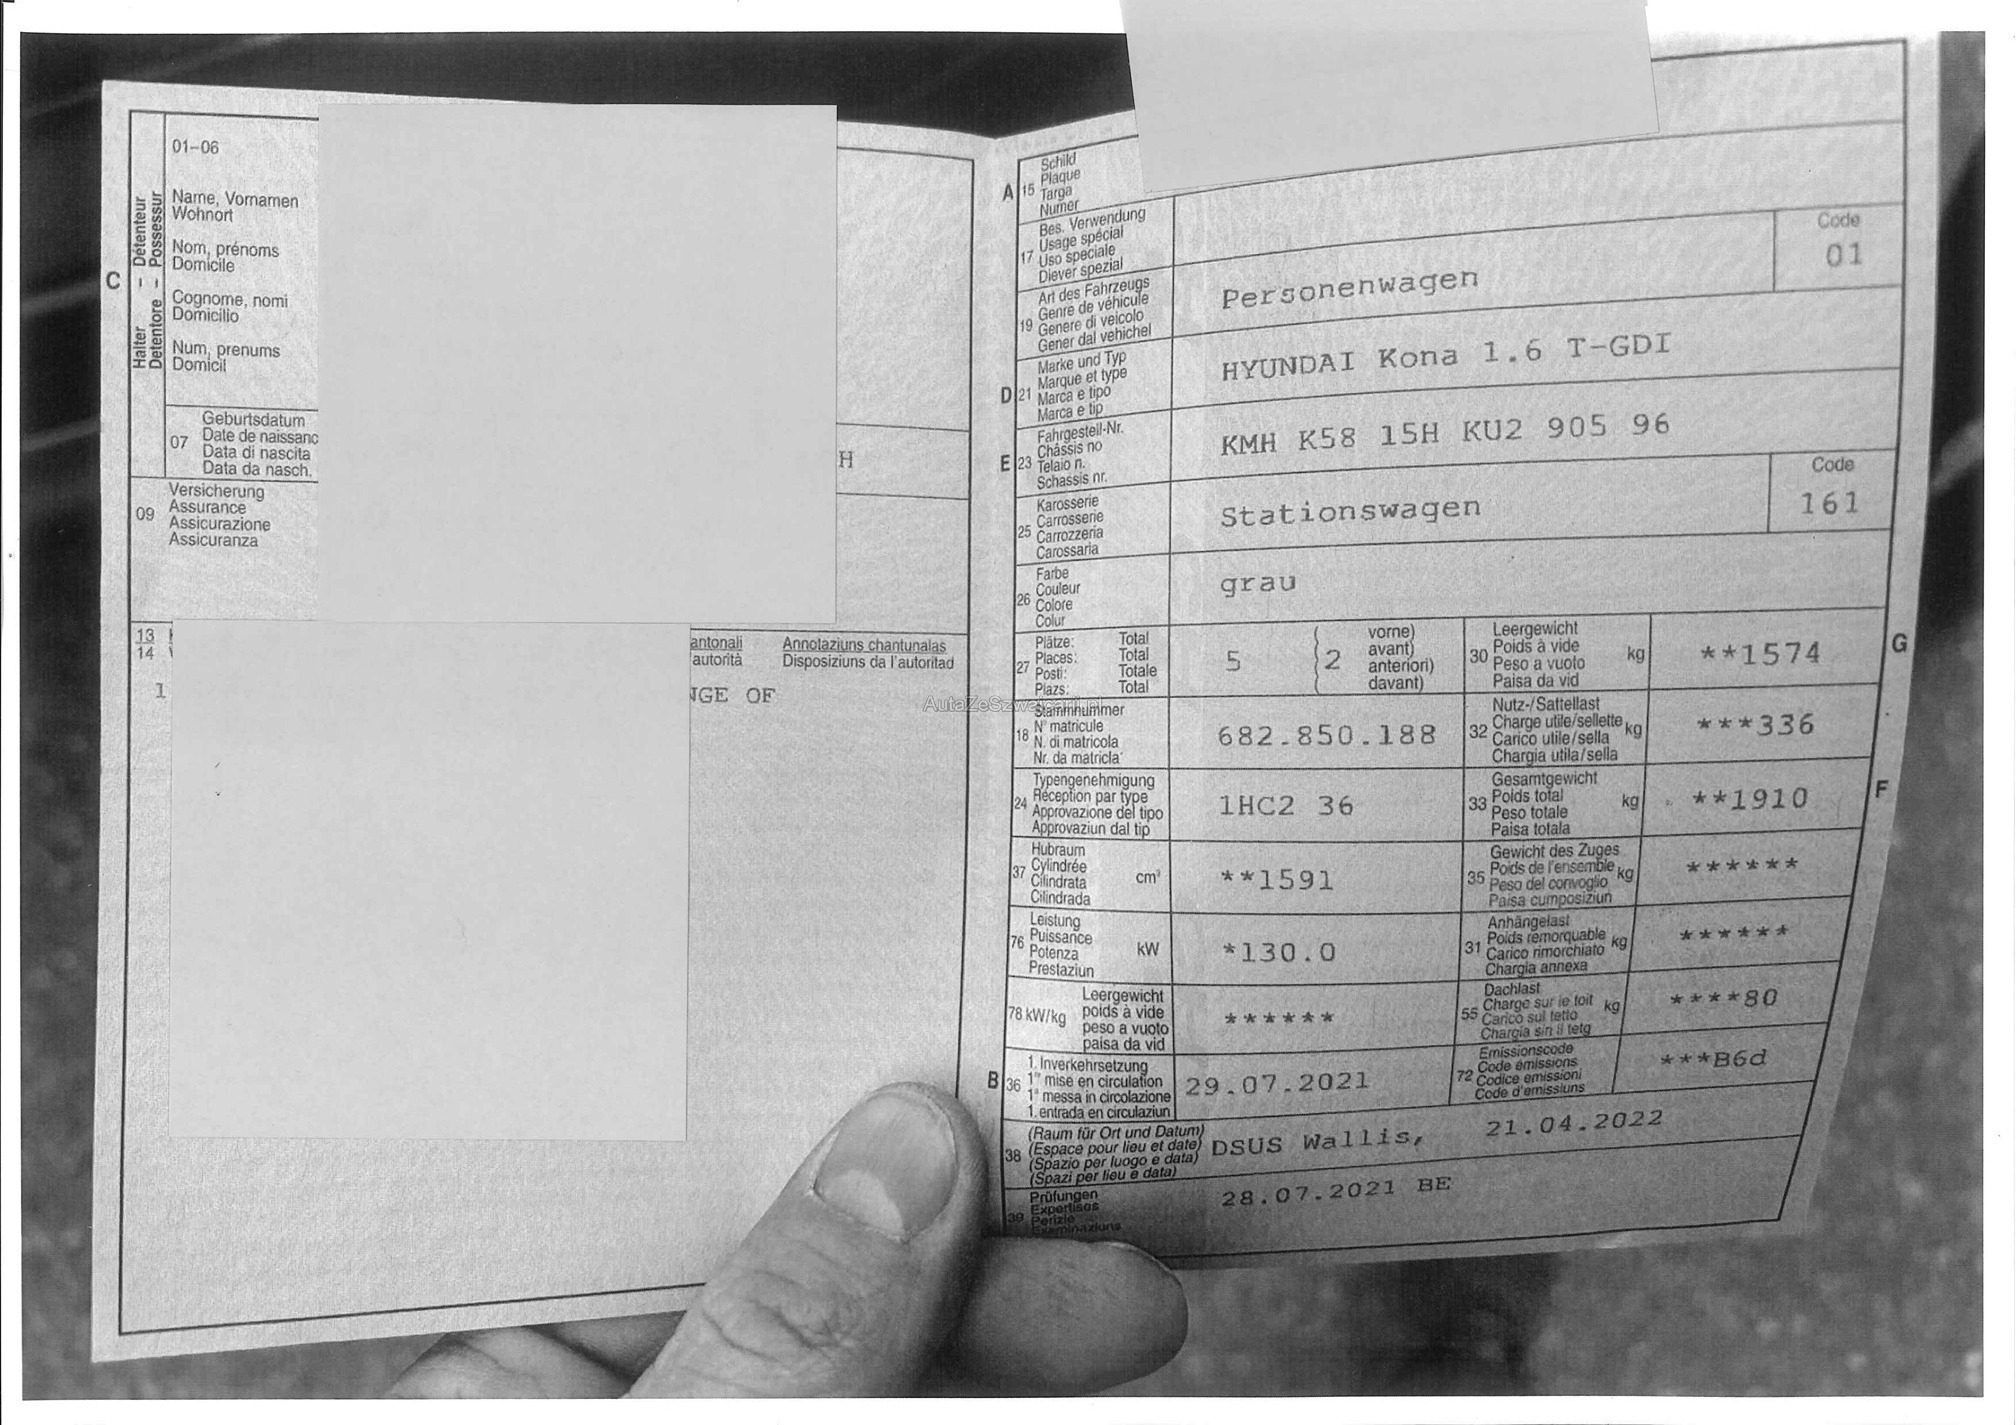 C
Halter – Détenteur
Detentore – Possessur
01–06
Name, Vornamen
Wohnort
Nom, prénoms
Domicile
Cognome, nomi
Domicilio
Num, prenums
Domicil
07
Geburtsdatum
Date de naissanc
Data di nascita
Data da nasch.
H
09
Versicherung
Assurance
Assicurazione
Assicuranza
13
14
antonali Annotaziuns chantunalas
autorità Disposiziuns da l'autoritad
1
NGE OF
A 15
Schild
Plaque
Targa
Numer
17
Bes. Verwendung
Usage spécial
Uso speciale
Diever spezial
19
Art des Fahrzeugs
Genre de véhicule
Genere di veicolo
Gener dal vehichel
Personenwagen
Code
01
D 21
Marke und Typ
Marque et type
Marca e tipo
Marca e tip
HYUNDAI Kona 1.6 T-GDI
E 23
Fahrgestell-Nr.
Châssis no
Telaio n.
Schassis nr.
KMH K58 15H KU2 905 96
25
Karosserie
Carrosserie
Carrozzeria
Carossaria
Stationswagen
Code
161
26
Farbe
Couleur
Colore
Colur
grau
27
Plätze: Total
Places: Total
Posti: Totale
Plazs: Total
5
2
vorne)
avant)
anteriori)
davant)
30
Leergewicht
Poids à vide
Peso a vuoto
Paisa da vid
kg
**1574
G
AutaZeSzwajcarii.pl
18
Stammnummer
N° matricule
N. di matricola
Nr. da matricla
682.850.188
32
Nutz-/Sattellast
Charge utile/sellette
Carico utile/sella
Chargia utila/sella
kg
***336
24
Typengenehmigung
Réception par type
Approvazione del tipo
Approvaziun dal tip
1HC2 36
33
Gesamtgewicht
Poids total
Peso totale
Paisa totala
kg
**1910
F
37
Hubraum
Cylindrée
Cilindrata
Cilindrada
cm³
**1591
35
Gewicht des Zuges
Poids de l'ensemble
Peso del convoglio
Paisa cumposiziun
kg
******
76
Leistung
Puissance
Potenza
Prestaziun
kW
*130.0
31
Anhängelast
Poids remorquable
Carico rimorchiato
Chargia annexa
kg
******
78 kW/kg
Leergewicht
poids à vide
peso a vuoto
paisa da vid
******
55
Dachlast
Charge sur le toit
Carico sul tetto
Chargia sin il tetg
kg
****80
B 36
1. Inverkehrsetzung
1re mise en circulation
1a messa in circolazione
1. entrada en circulaziun
29.07.2021
72
Emissionscode
Code émissions
Codice emissioni
Code d'emissiuns
***B6d
38
(Raum für Ort und Datum)
(Espace pour lieu et date)
(Spazio per luogo e data)
(Spazi per lieu e data)
DSUS Wallis, 21.04.2022
39
Prüfungen
Expertises
Perizie
Examinaziuns
28.07.2021 BE